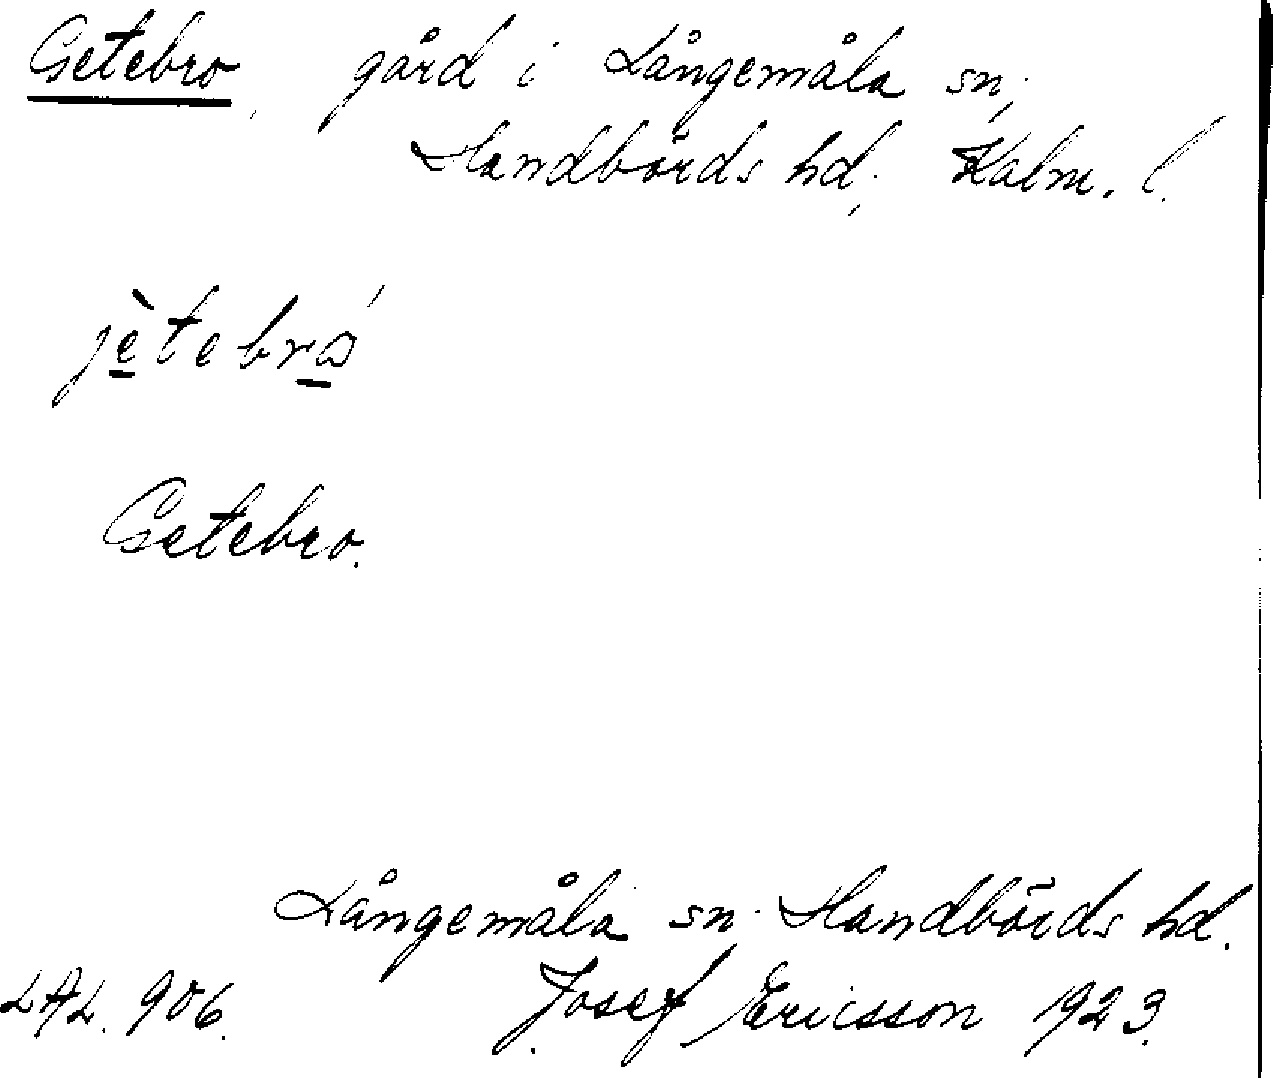 Getebro, gård i Långemåla sn,
Handbörds hd, Kalm. l.
jètebrɷ́
Getebro.
Långemåla sn. Handbörds hd.
LAL. 906. Josef Ericsson 1923.